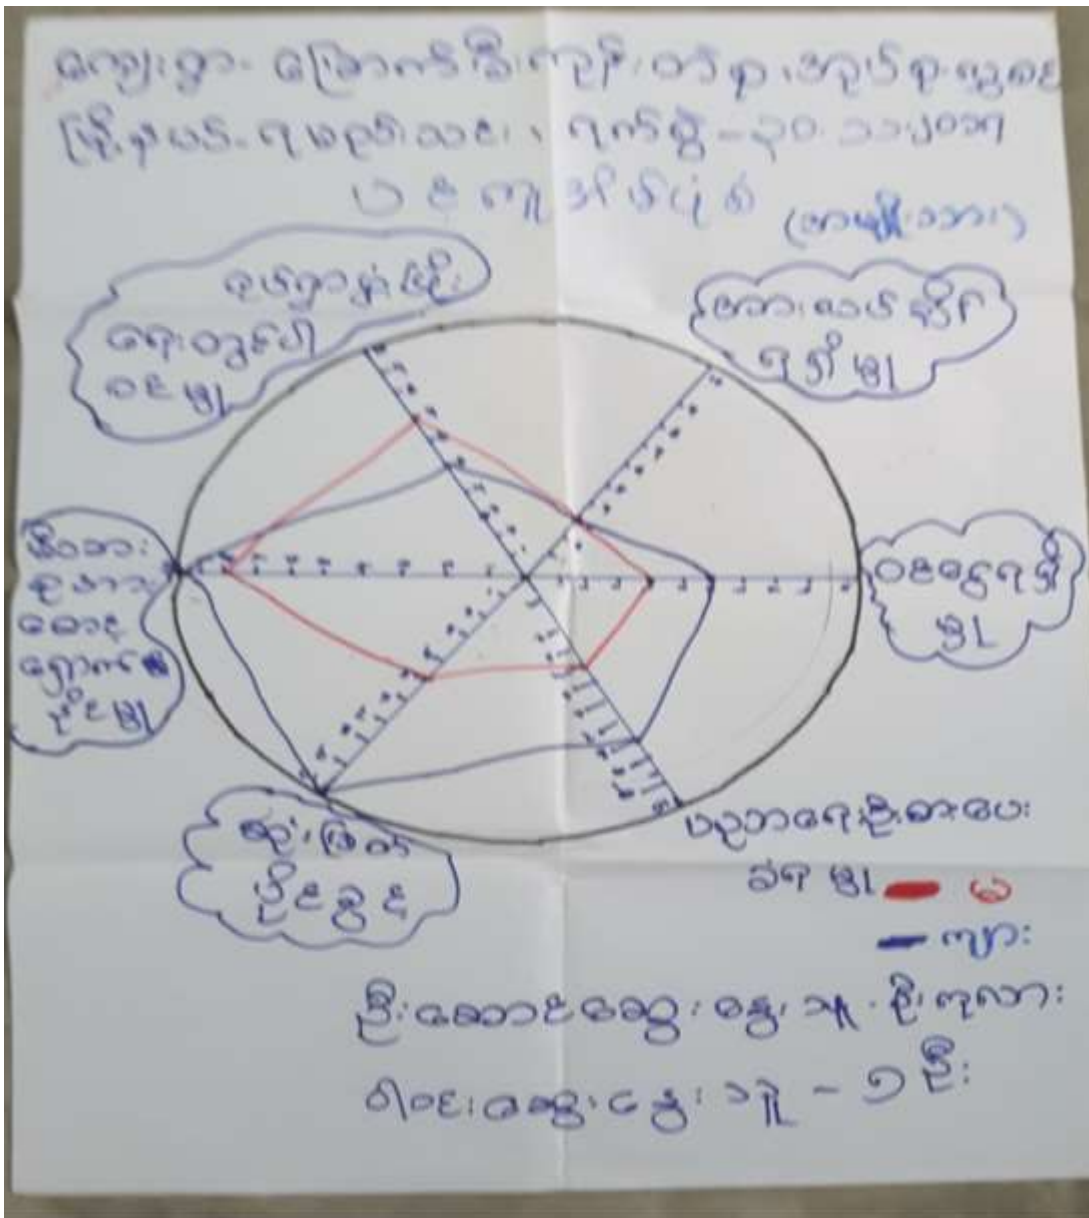 ကျေးရွာ- မြောက်ခြီးကုန်း အုပ်စု
မြို့နယ်- ရမည်းသင်း၊ ရက်စွဲ - ၃၀.၁၁.၂၀၁၇
ပင့်ကူအိမ်ပုံစံ (အမျိုးသား)
ရပ်ရွာဖွံ့ဖြိုး
ရေးတွင်ပါ
ဝင်မှု
အားလပ်ချိန်
ရရှိမှု
မိသားစု
စောင့်
ရှောက်
နိုင်မှု
ဝင်ငွေရရှိ
မှု
ဆုံးဖြတ်
ပိုင်ခွင့်
ပညာရေးဦးစားပေး
ခံရမှု
မ
ကျား
ဦးဆောင်ဆွေးနွေးသူ - ဦးကုလား
ပါဝင်ဆွေးနွေးသူ - ၅ ဦး